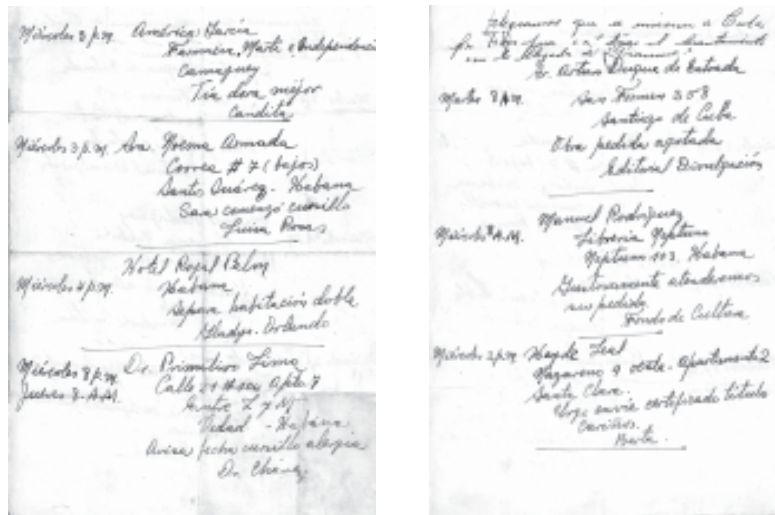 Miércoles 3 p.m. América García
Farmacia, Martí e Independencia
Camaguey
Tía Dora mejor
Candita
Miércoles 3 p.m. Sra. Noema Armada
Correa # 7 (bajos)
Santos Suárez - Habana
Sara comenzó cursillo
Luisa Rosas
Hotel Royal Palm
Miércoles 4 p.m. Habana
Separa habitación doble
Gladys - Orlando
Miércoles 8 p.m. Dr. Primitivo Lima
Jueves 8 A.M. Calle 21 Apto 7
Entre L y M
Vedado - Habana
Avisa fecha cursillo alergia
Dr. Chávez
telegramas que se enviaron a Cuba
Sr. Arturo Duque de Estrada
Martes 8 A.M. San Fermín 358
Santiago de Cuba
Obra pedida agotada
Editorial Divulgación
Manuel Rodríguez
Miércoles A.M. Librería Neptuno
Neptuno 113. Habana
Gustosamente atenderemos
su pedido
Fondo de Cultura
Miércoles 2 p.m. Haydé Leal
Nazareno 9 oeste - Apartamento 2
Santa Clara.
Urge envíe certificado título
Cariños.
Berta.